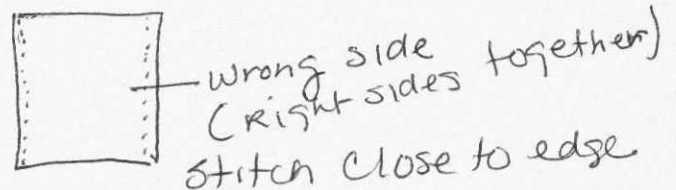 wrong side
(Right sides together)
Stitch close to edge